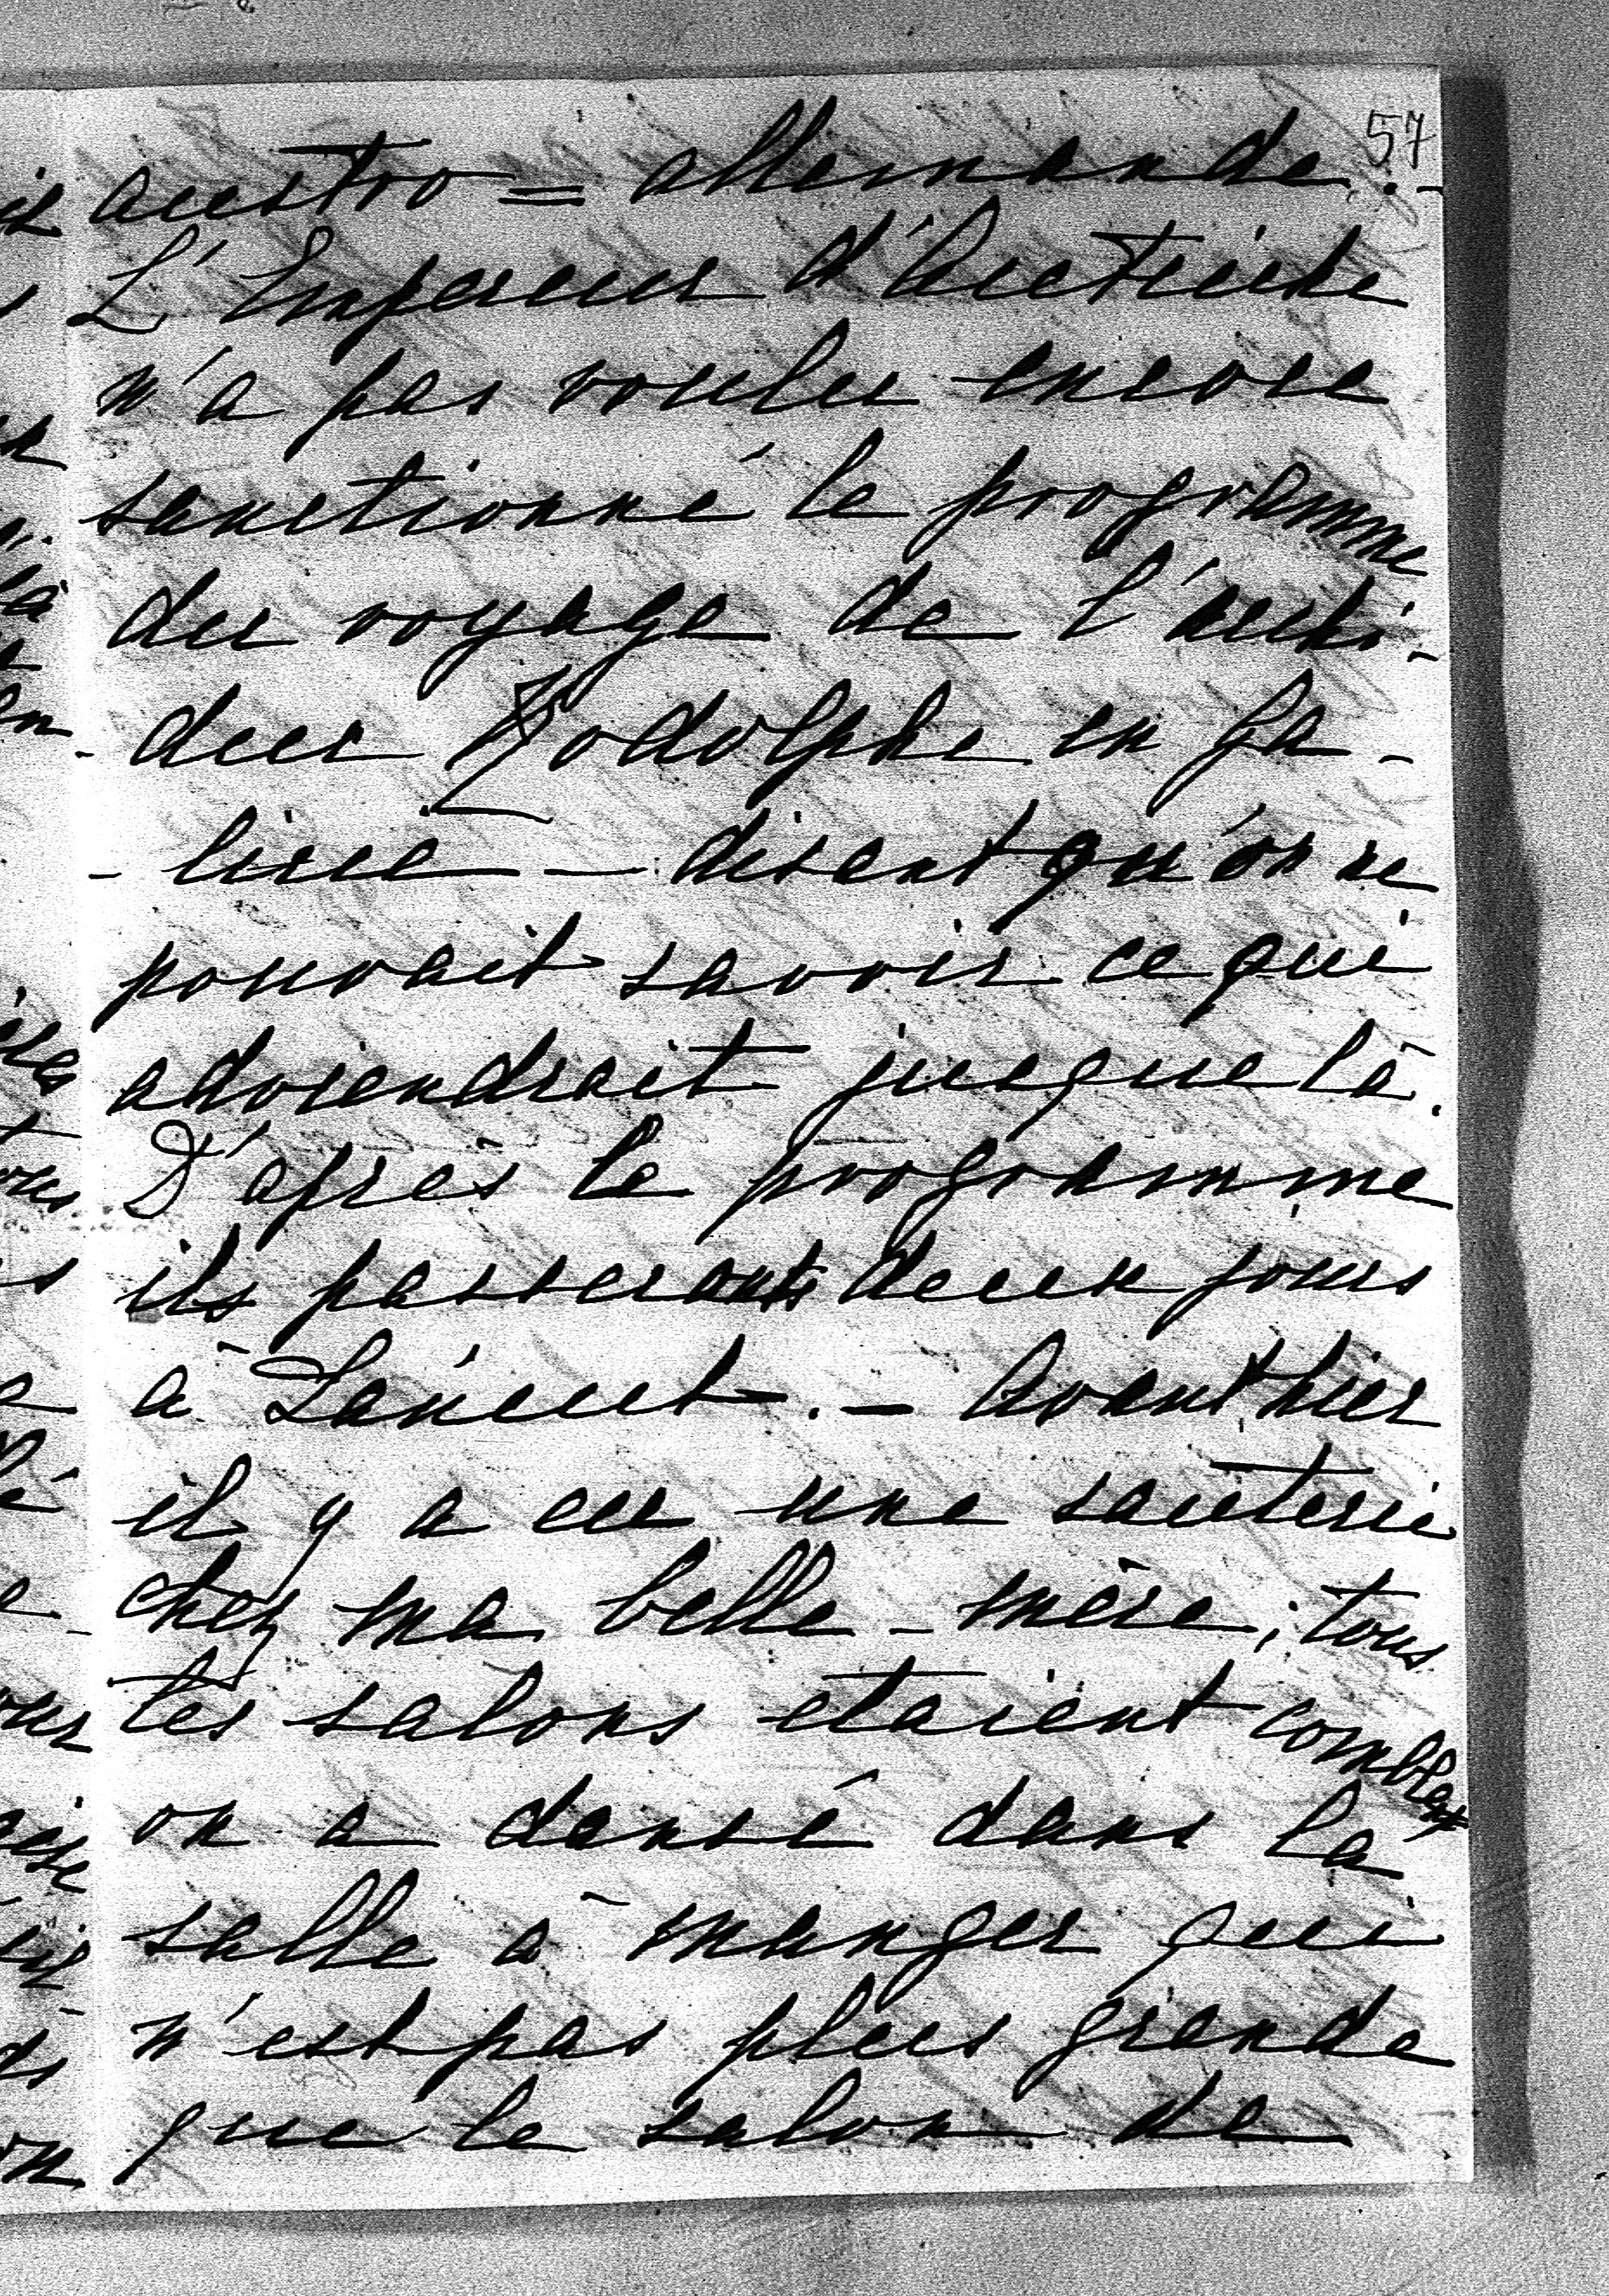 57
austro = allemande. -
L'Empereur d'Autriche
n'a pas voulu encore
sanctionné le programme
du voyage de l'archi-
- duc Rodolphe en Ga-
- licie — disant qu'on ne
pouvait savoir ce qui
adviendrait jusque là.
D'après le programme
ils passeront deux jours
à Łańcut. — Avant hier
il y a eu une sauterie
chez ma belle-mère; tous
les salons etaient combles
on a dansé dans la
salle à manger qui
n'est pas plus grande
que le salon de